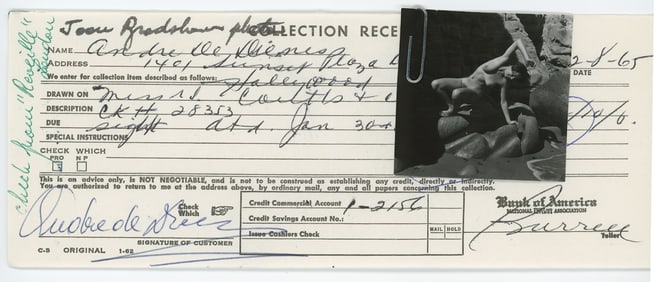 Joan Bradshaw photo
COLLECTION RECE
NAME Andre De Dienes
ADDRESS 1401 Sunset Plaza D
2-8-65
DATE
We enter for collection item described as follows: Hollywood
DRAWN ON Messrs Coutts & C
DESCRIPTION CK # 28353
DUE sight atd. Jan 30
SPECIAL INSTRUCTIONS
CHECK WHICH
PRO NP
This is an advice only, is NOT NEGOTIABLE, and is not to be construed as establishing any credit, directly or indirectly.
You are authorized to return to me at the above address, by ordinary mail, any and all papers concerning this collection.
check from "Reveille" London
Andre de Dienes
SIGNATURE OF CUSTOMER
C-3 ORIGINAL 1-62
Check Which
Credit Commercial Account 1-2156
Credit Savings Account No.:
Issue Cashiers Check
MAIL HOLD
Bank of America
NATIONAL TRUST AND SAVINGS ASSOCIATION
Teller